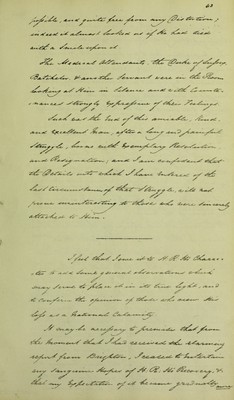 43
possible, and quite free from any Distortion;
indeed it almost looked as if He had died
with a Smile upon it
The Medical Attendants, the Duke of Sussex,
Batchelor & another Servant were in the Room
looking at Him in Silence and with Counte-
nances strongly Expressive of their Feelings
Such was the End of this amiable, kind,
and Excellent Man, after a long and painful
Struggle, borne with Exemplary Resolution
and Resignation; and I am confident that
the Details into which I have entered of the
last circumstances of that Struggle, will not
prove uninteresting to those who were sincerely
attached to Him.
I feel that I owe it to H.R.H's Charac-
ter to add some general observations which
may serve to place it in its true light, and
to confirm the opinion of those who view His
loss as a National Calamity
It may be necessary to premise that from
the Moment that I had received the alarming
report from Brighton, I ceased to entertain
any sanguine Hopes of H.R.H's Recovery, &
that my Expectation of it became gradually